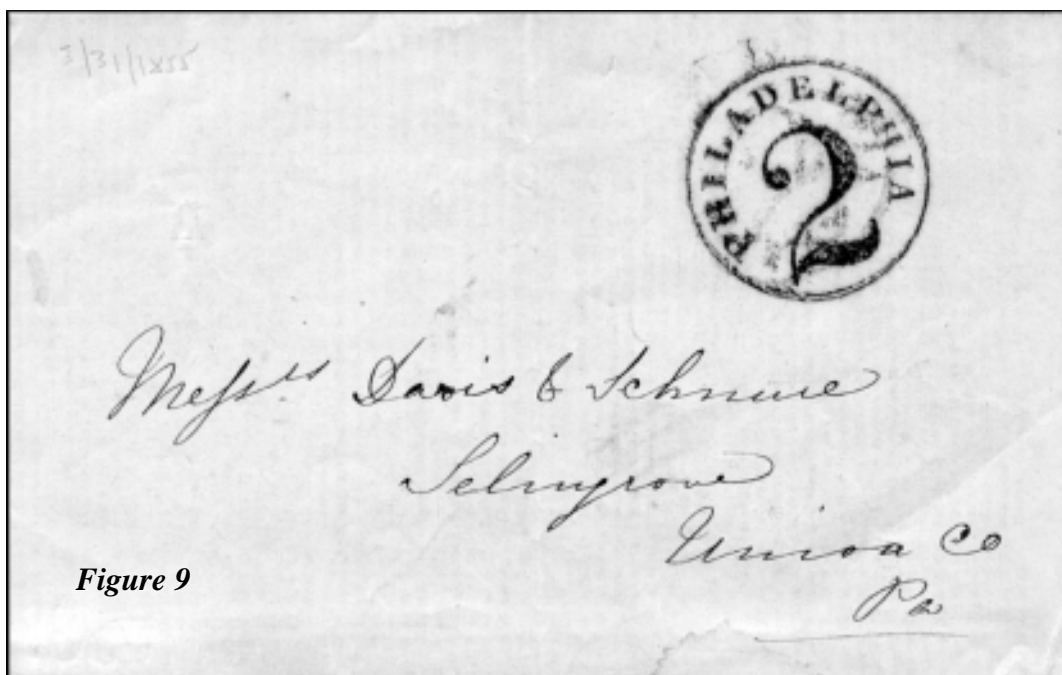 3/31/1855
PHILADELPHIA
2
Messrs Davis & Schnure
Selinsgrove
Union Co
Pa
Figure 9